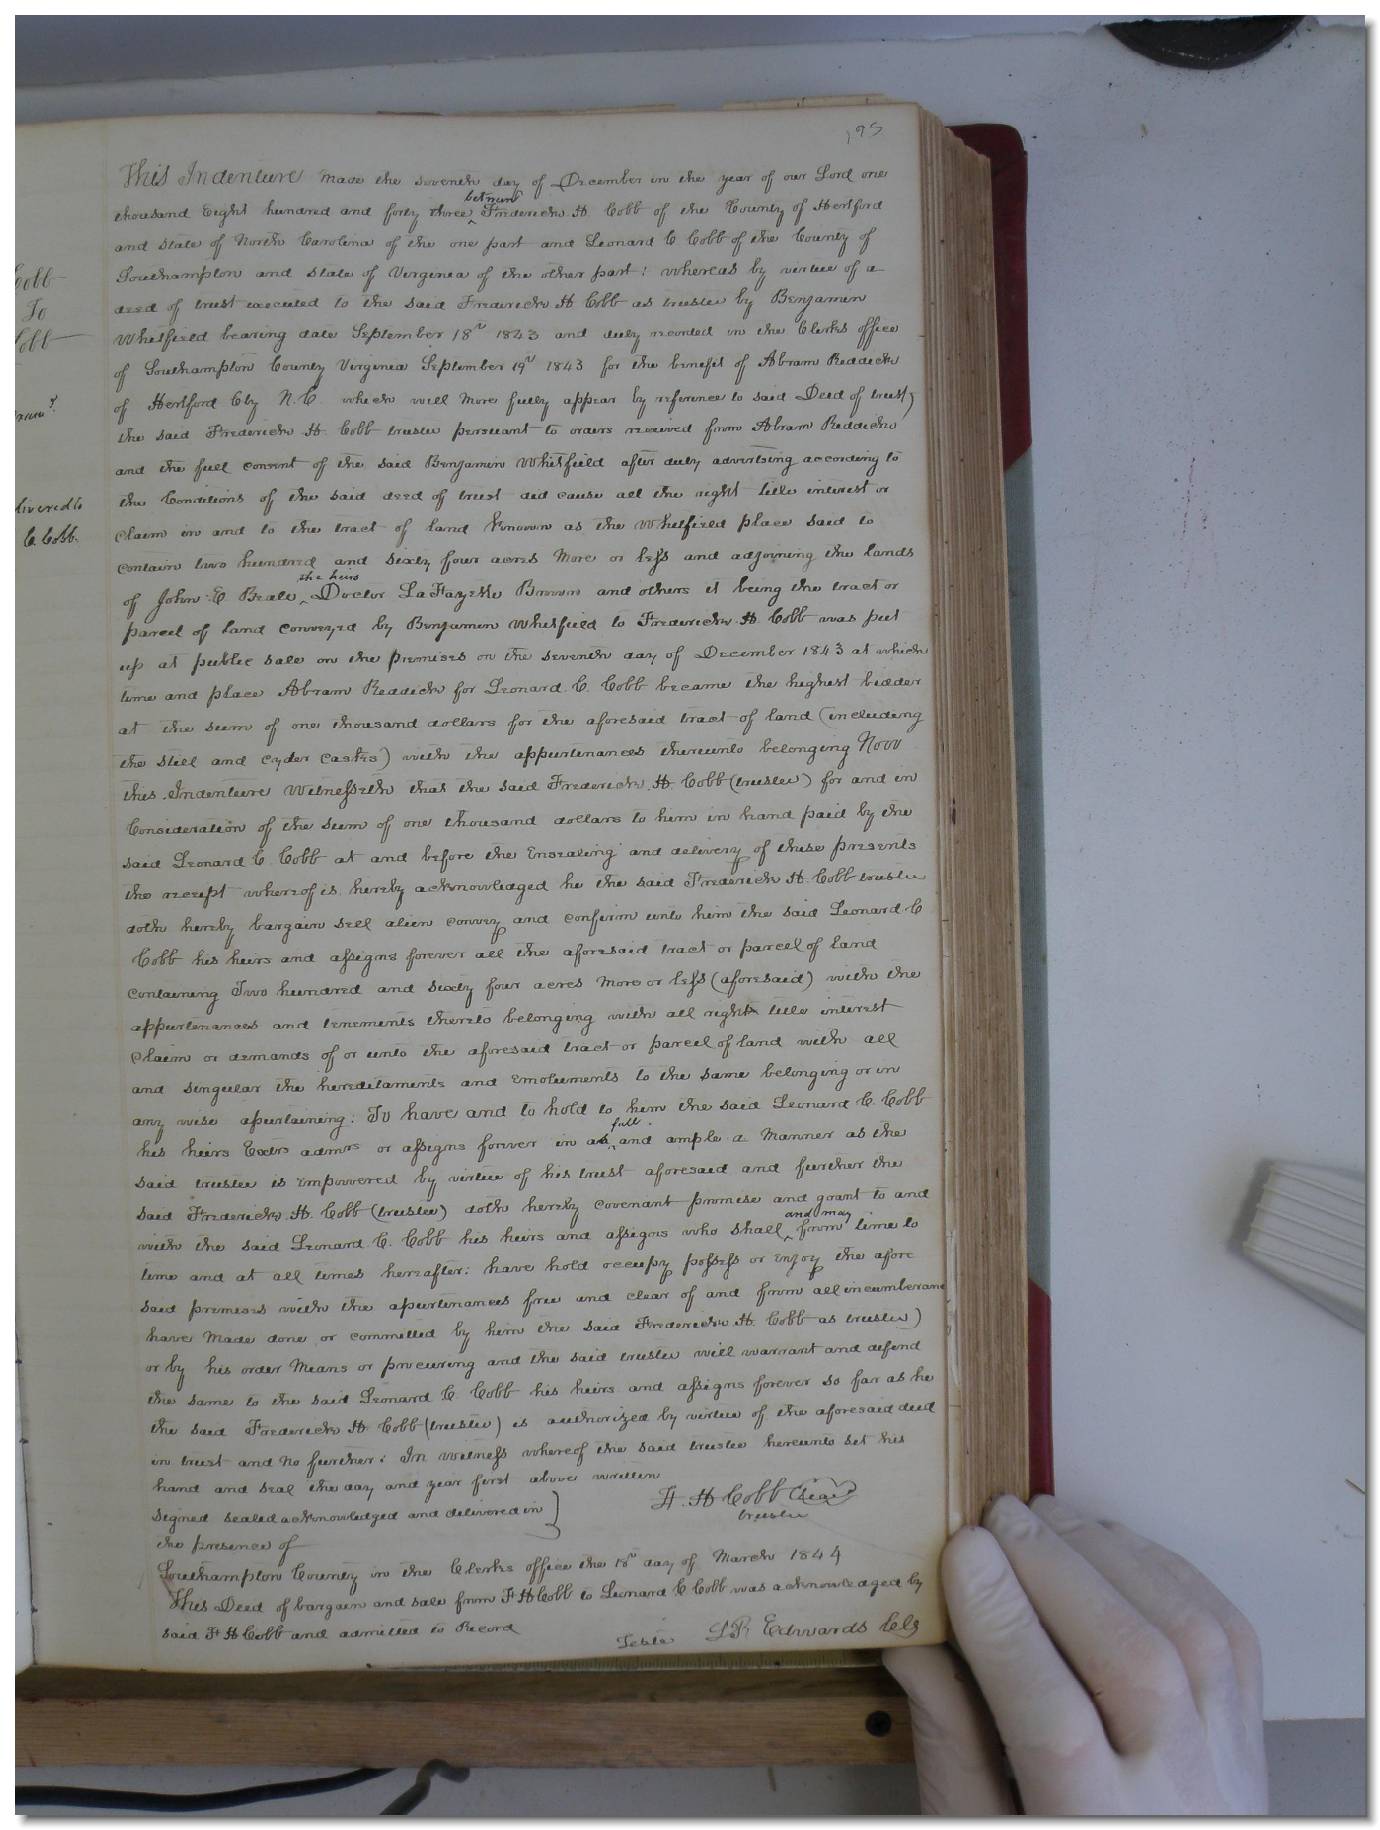 195
This Indenture made the seventh day of December in the year of our Lord one
thousand Eight hundred and forty three between Frederick H. Cobb of the County of Hertford
and State of North Carolina of the one part and Leonard C Cobb of the County of
Southampton and State of Virginia of the other part: Whereas by virtue of a
deed of trust executed to the said Frederick H Cobb as trustee by Benjamin
Whitfield bearing date September 18th 1843 and duly recorded in the Clerks office
of Southampton County Virginia September 19th 1843 for the benefit of Abram Reddick
of Hertford Cty N.C. which will more fully appear by reference to said Deed of trust,
the said Frederick H. Cobb trustee persuant to orders received from Abram Reddick
and the full consent of the said Benjamin Whitfield after duly advertising according to
the Conditions of the said deed of trust did cause all the right title interest or
claim in and to the tract of land known as the Whitfield place said to
contain two hundred and sixty four acres more or less and adjoining the lands
of John E Beale, the heirs Doctor LaFayette Brown and others it being the tract or
parcel of land conveyed by Benjamin Whitfield to Frederick H. Cobb was put
up at public sale on the premises on the seventh day of December 1843 at which
time and place Abram Reddick for Leonard C. Cobb became the highest bidder
at the sum of one thousand dollars for the aforesaid tract of land (including
the still and cyder casks) with the appurtenances thereunto belonging Now
this Indenture Witnesseth that the said Frederick H. Cobb (trustee) for and in
Consideration of the sum of one thousand dollars to him in hand paid by the
said Leonard C. Cobb at and before the Ensealing and delivery of these presents
the receipt whereof is hereby acknowledged he the said Frederick H. Cobb trustee
doth hereby bargain sell alien convey and confirm unto him the said Leonard C
Cobb his heirs and assigns forever all the aforesaid tract or parcel of land
containing Two hundred and sixty four acres more or less (aforesaid) with the
appurtenances and tenements thereto belonging with all right title interest
claim or demands of or unto the aforesaid tract or parcel of land with all
and singular the hereditaments and Emoluments to the same belonging or in
any wise apurtaining: To have and to hold to him the said Leonard C. Cobb
his heirs Exctrs admrs or assigns forever in as full and ample a manner as the
said trustee is empowered by virtue of his trust aforesaid and further the
said Frederick H. Cobb (trustee) doth hereby covenant promise and grant to and
with the said Leonard C. Cobb his heirs and assigns who shall and may from time to
time and at all times hereafter: have hold occupy possess or enjoy the afore
said premises with the apurtenances free and clear of and from all incumberance
have made done or committed by him the said Frederick H. Cobb as trustee)
or by his order means or procuring and the said trustee will warrant and defend
the same to the said Leonard C. Cobb his heirs and assigns forever so far as he
the said Frederick H Cobb (trustee) is authorized by virtue of the aforesaid deed
in trust and no further: In witness whereof the said trustee hereunto set his
hand and seal the day and year first above written
F. H Cobb (Seal)
trustee
Signed sealed acknowledged and delivered in
the presence of
Southampton County in the Clerks office the 18th day of March 1844
This Deed of bargain and sale from F H Cobb to Leonard C Cobb was acknowledged by
said F H Cobb and admitted to Record
Teste L R Edwards Clk
Cobb
To
Cobb
livered to
C. Cobb.